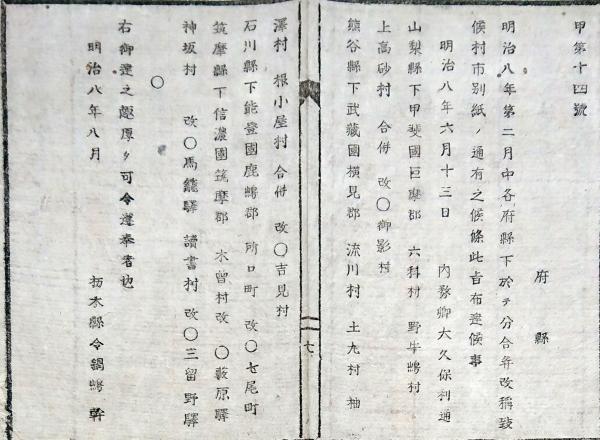 甲第十四號
府縣
明治八年第二月中各府縣下於テ分合并改稱致
候村市別紙ノ通有之候條此旨布達候事
明治八年六月十三日 内務卿大久保利通
山梨縣下甲斐國巨摩郡 六科村 野牛嶋村
上高砂村 合併 改〇御影村
熊谷縣下武藏國横見郡 流川村 土丸村 柚
澤村 根小屋村 合併 改〇吉見村
石川縣下能登國鹿嶋郡 所口町 改〇七尾町
筑摩縣下信濃國筑摩郡 木留村改 〇藪原驛
神坂村 改〇馬籠驛 讀書村 改〇三留野驛
〇
右御達之趣厚ク可令遵奉者也
明治八年八月 栃木縣令鍋嶋幹
七